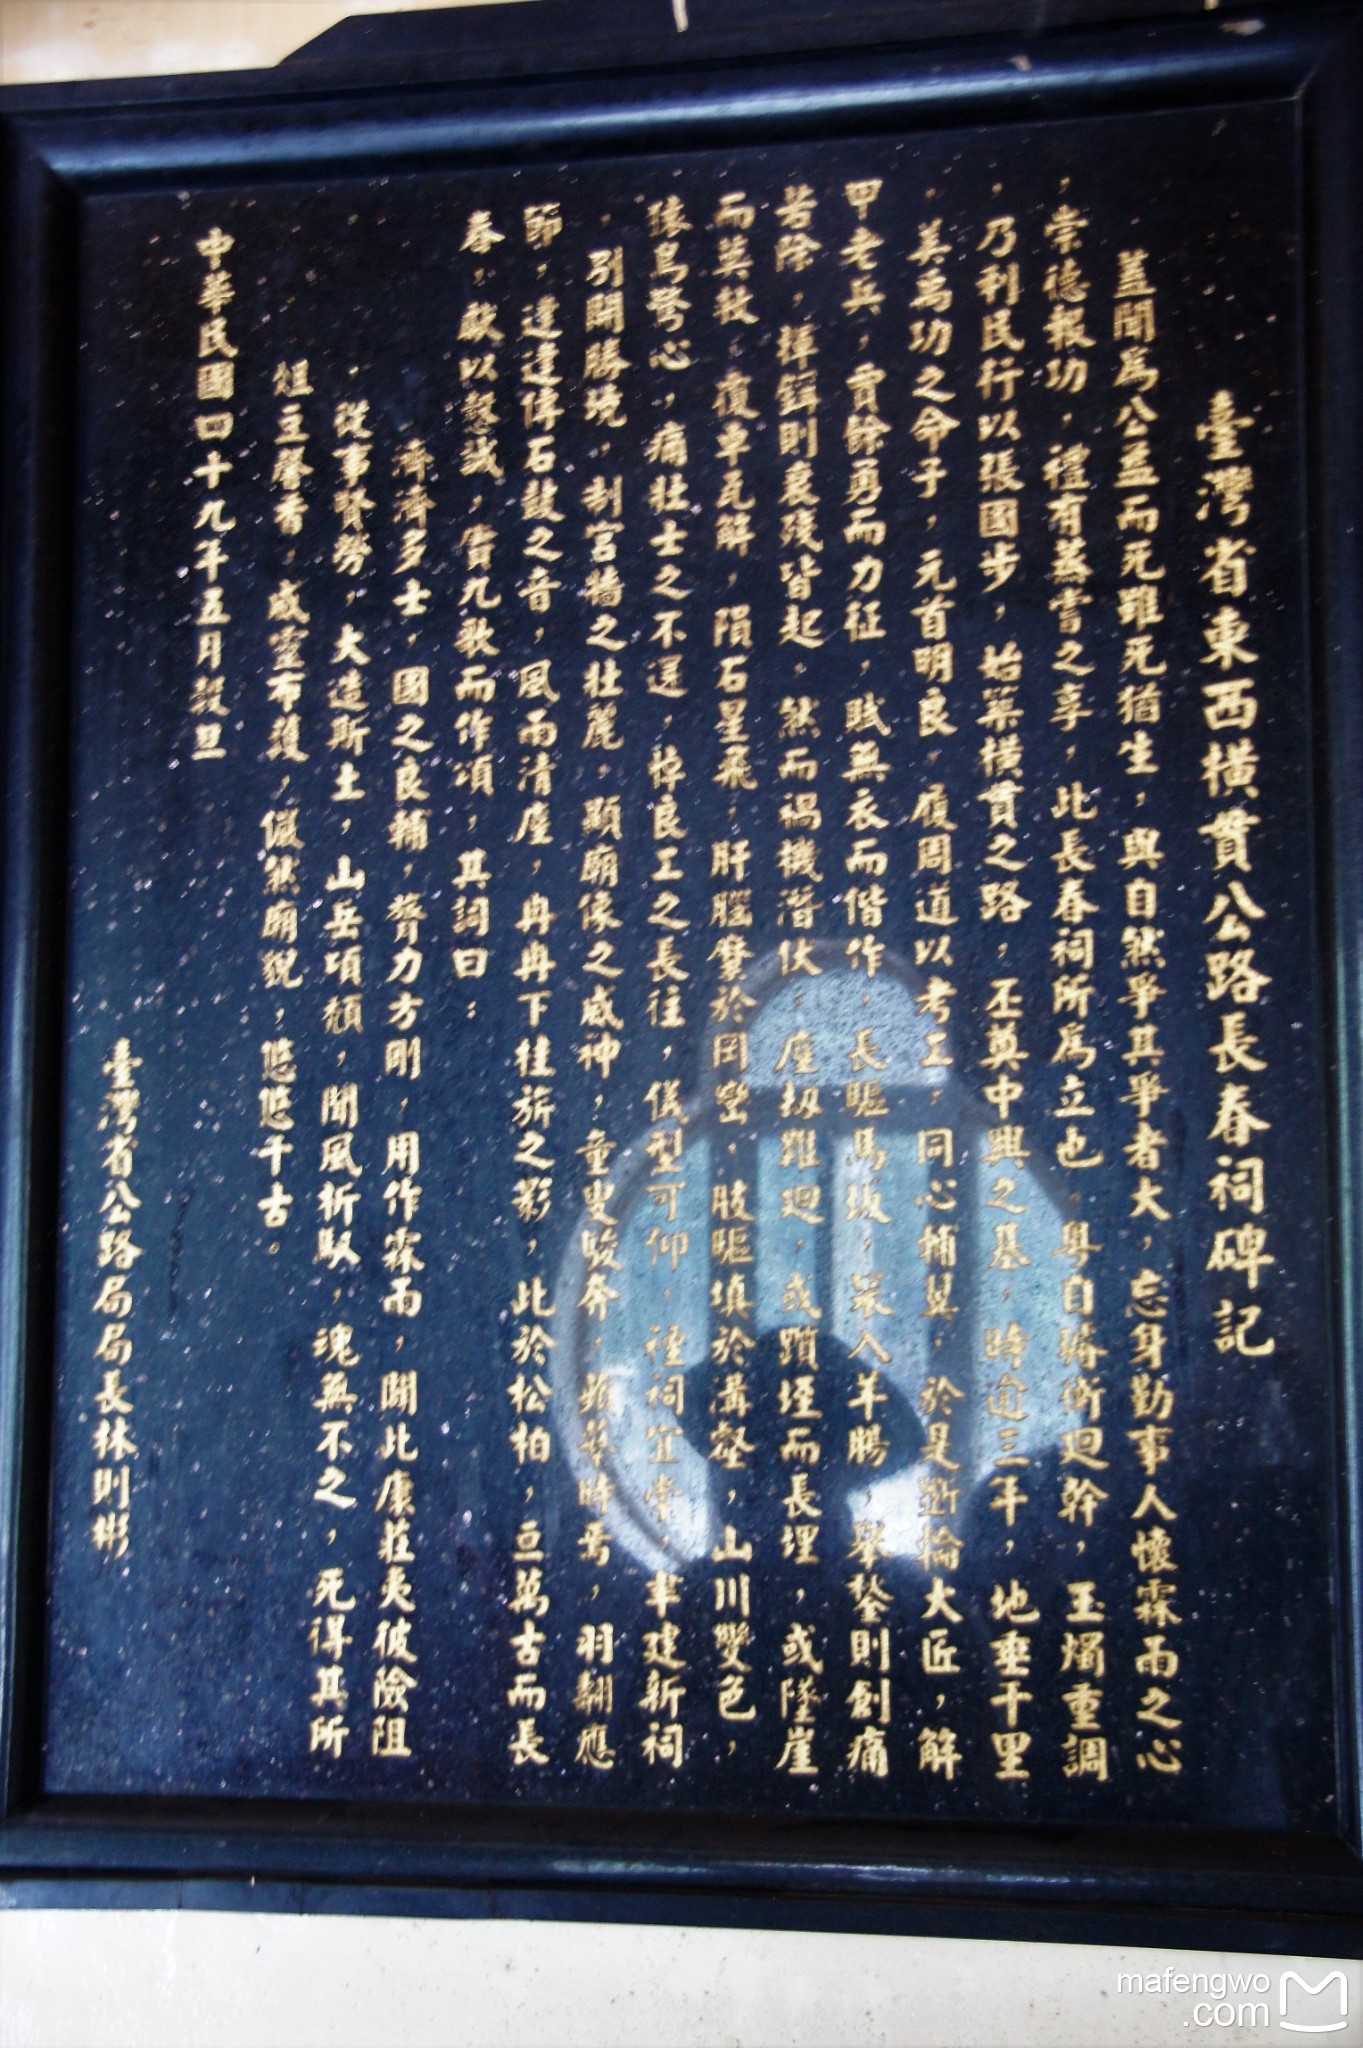 臺灣省東西橫貫公路長春祠碑記
蓋聞為公益而死雖死猶生，與自然爭其爭者大，忘身勤事人懷霖雨之心
，崇德報功，禮有蒸嘗之享，此長春祠所為立也。粵自璿衡迴幹，玉燭重調
，乃利民行以張國步，始築橫貫之路，丕奠中興之基，時逾三年，地亙千里
，美禹功之命子，元首明良，履周道以考工，同心輔翼，於是斲輪大匠，解
甲老兵，賈餘勇而力征，賦無衣而偕作，長驅馬坂，深入羊腸，舉鍪則創痛
若除，揮鍤則衰殘皆起，然而禍機潛伏，塵劫難迴，或躓垤而長埋，或墜崖
而莫救，覆車瓦解，隕石星飛，肝腦糜於岡巒，肢軀填於溝壑，山川變色，
猿鳥驚心，痛壯士之不還，悼良工之長往，儀型可仰，禋祠宜崇，聿建新祠
，別開勝境，制宮牆之壯麗，顯廟像之威神，童叟駿奔，蘋蘩時薦，羽翿應
節，逢逢傳石鼓之音，風雨清塵，冉冉下往旂之影，此於松柏，亘萬古而長
春，獻以馨誠，賡九歌而作頌，其詞曰：
濟濟多士，國之良輔，膂力方剛，用作霖雨，開此康莊夷彼險阻
，從事賢勞，大造斯土，山岳項頹，聞風折馭，魂無不之，死得其所
俎豆馨香，威靈布護，儼然廟貌，悠悠千古。
中華民國四十九年五月穀旦
臺灣省公路局局長林則彬
mafengwo
.com